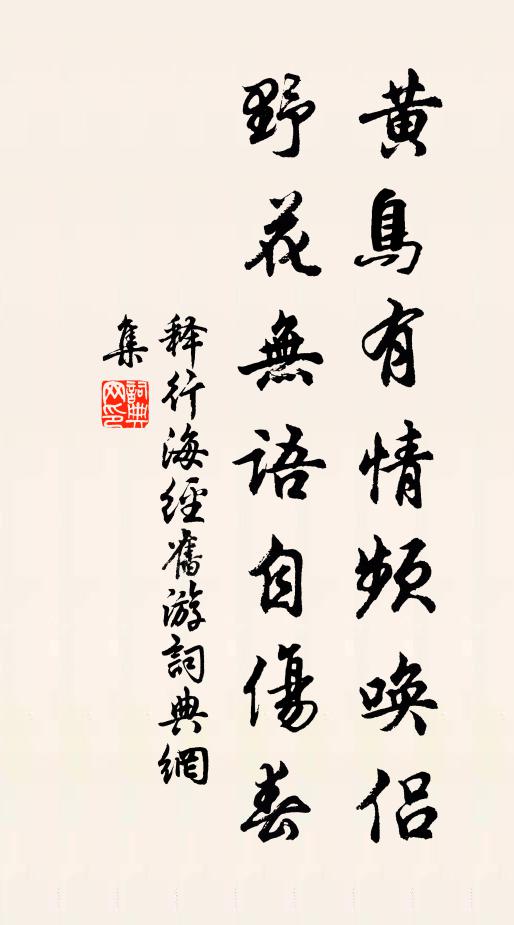 黃鳥有情頻喚侶
野花無語自傷春
释行海經舊游詞典網
集
詞典
网印